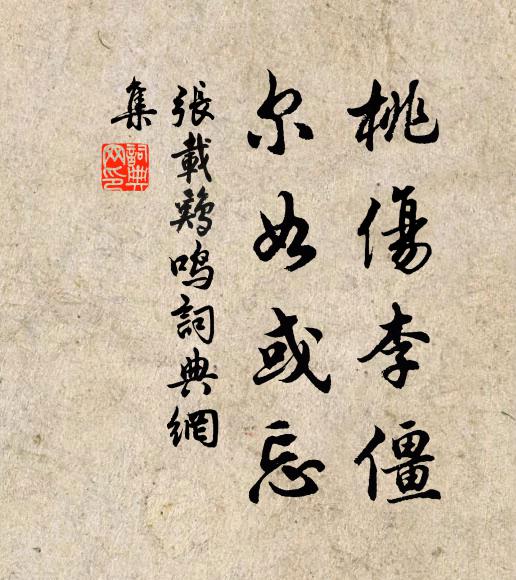 桃傷李僵
尔如或忘
張載鶏鸣詞典網
集
詞典網印